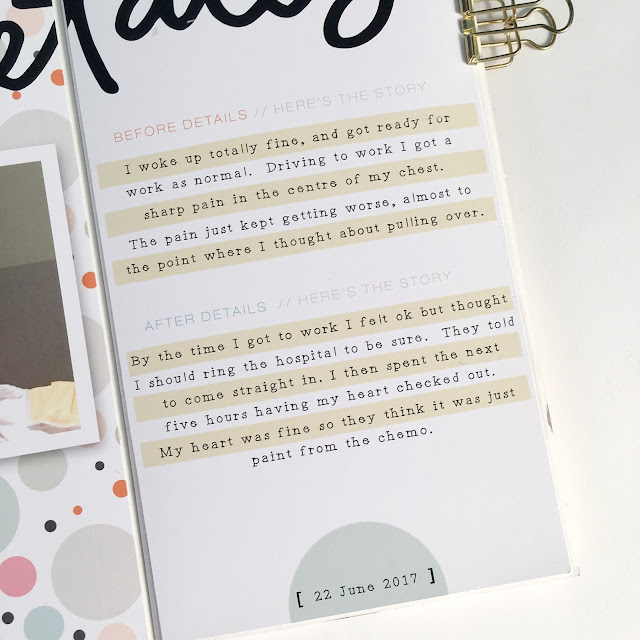 BEFORE DETAILS // HERE'S THE STORY
I woke up totally fine, and got ready for
work as normal. Driving to work I got a
sharp pain in the centre of my chest.
The pain just kept getting worse, almost to
the point where I thought about pulling over.
AFTER DETAILS // HERE'S THE STORY
By the time I got to work I felt ok but thought
I should ring the hospital to be sure. They told
to come straight in. I then spent the next
five hours having my heart checked out.
My heart was fine so they think it was just
paint from the chemo.
[ 22 June 2017 ]